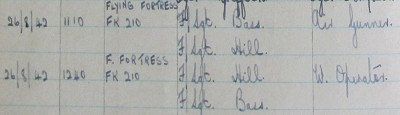 FLYING FORTRESS
26/8/42 1110 FK 210 F/Sgt. Bass. Air Gunner.
F/Sgt. Hill.
F. FORTRESS
26/8/42 1240 FK 210 F/Sgt. Hill. W. Operator.
F/Sgt. Bass.